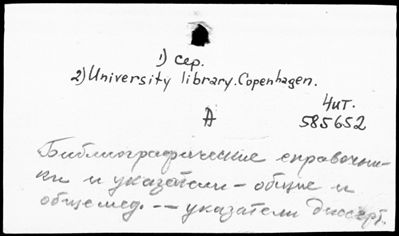 1) Сер.
2) University library. Copenhagen.
Чит.
A
585652
Библиографические справочни-
ки и указатели - общие и
общемед. -- указатели диссерт.